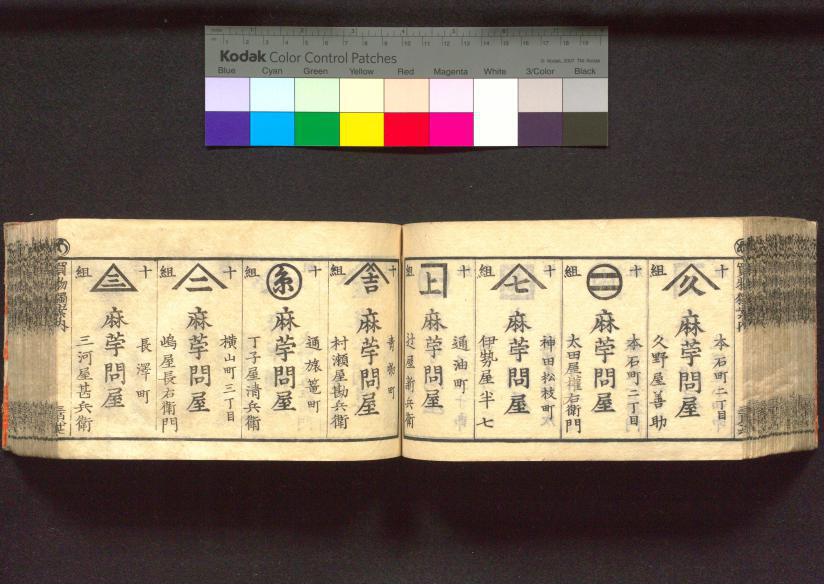 Kodak Color Control Patches
© Kodak, 2007 TM: Kodak
Blue Cyan Green Yellow Red Magenta White 3/Color Black
十 久 組
本石町二丁目
麻苧問屋
久野屋善助
十 二 組
本石町二丁目
麻苧問屋
太田屋権右衛門
十 七 組
神田松枝町
麻苧問屋
伊勢屋半七
十 上 組
通油町
麻苧問屋
辻屋新兵衛
十 吉 組
青物町
麻苧問屋
村瀬屋勘兵衛
十 糸 組
通旅篭町
麻苧問屋
丁子屋清兵衛
十 二 組
横山町三丁目
麻苧問屋
嶋屋長右衛門
十 三 組
長澤町
麻苧問屋
三河屋甚兵衛
買物獨案内